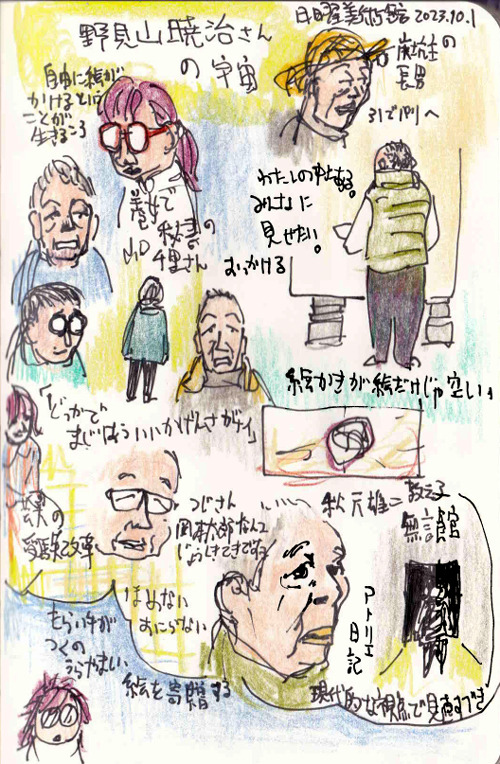 日曜美術館 2023.10.1
野見山暁治さん
の宇宙
炭坑主の
長男
31でパリへ
自由に絵が
かけるという
ことが
生きるころ
養女で
秘書の
山口
千里さん
わたしの中にある。
みなさまに
見せたい。
おっかける
絵かきが絵だけじゃ空しい」
「どっかで
まじほういいかげんさがイ」
芸大の
受験で文章
つじさん
岡本太郎なんて
じょうしきてきですね
秋元雄二 教え子
無言館
アトリエ
日記
ほめない
おこらない
もらい手が
つくの
うらやましい
絵を寄贈する
現代的な視点で見直すべき